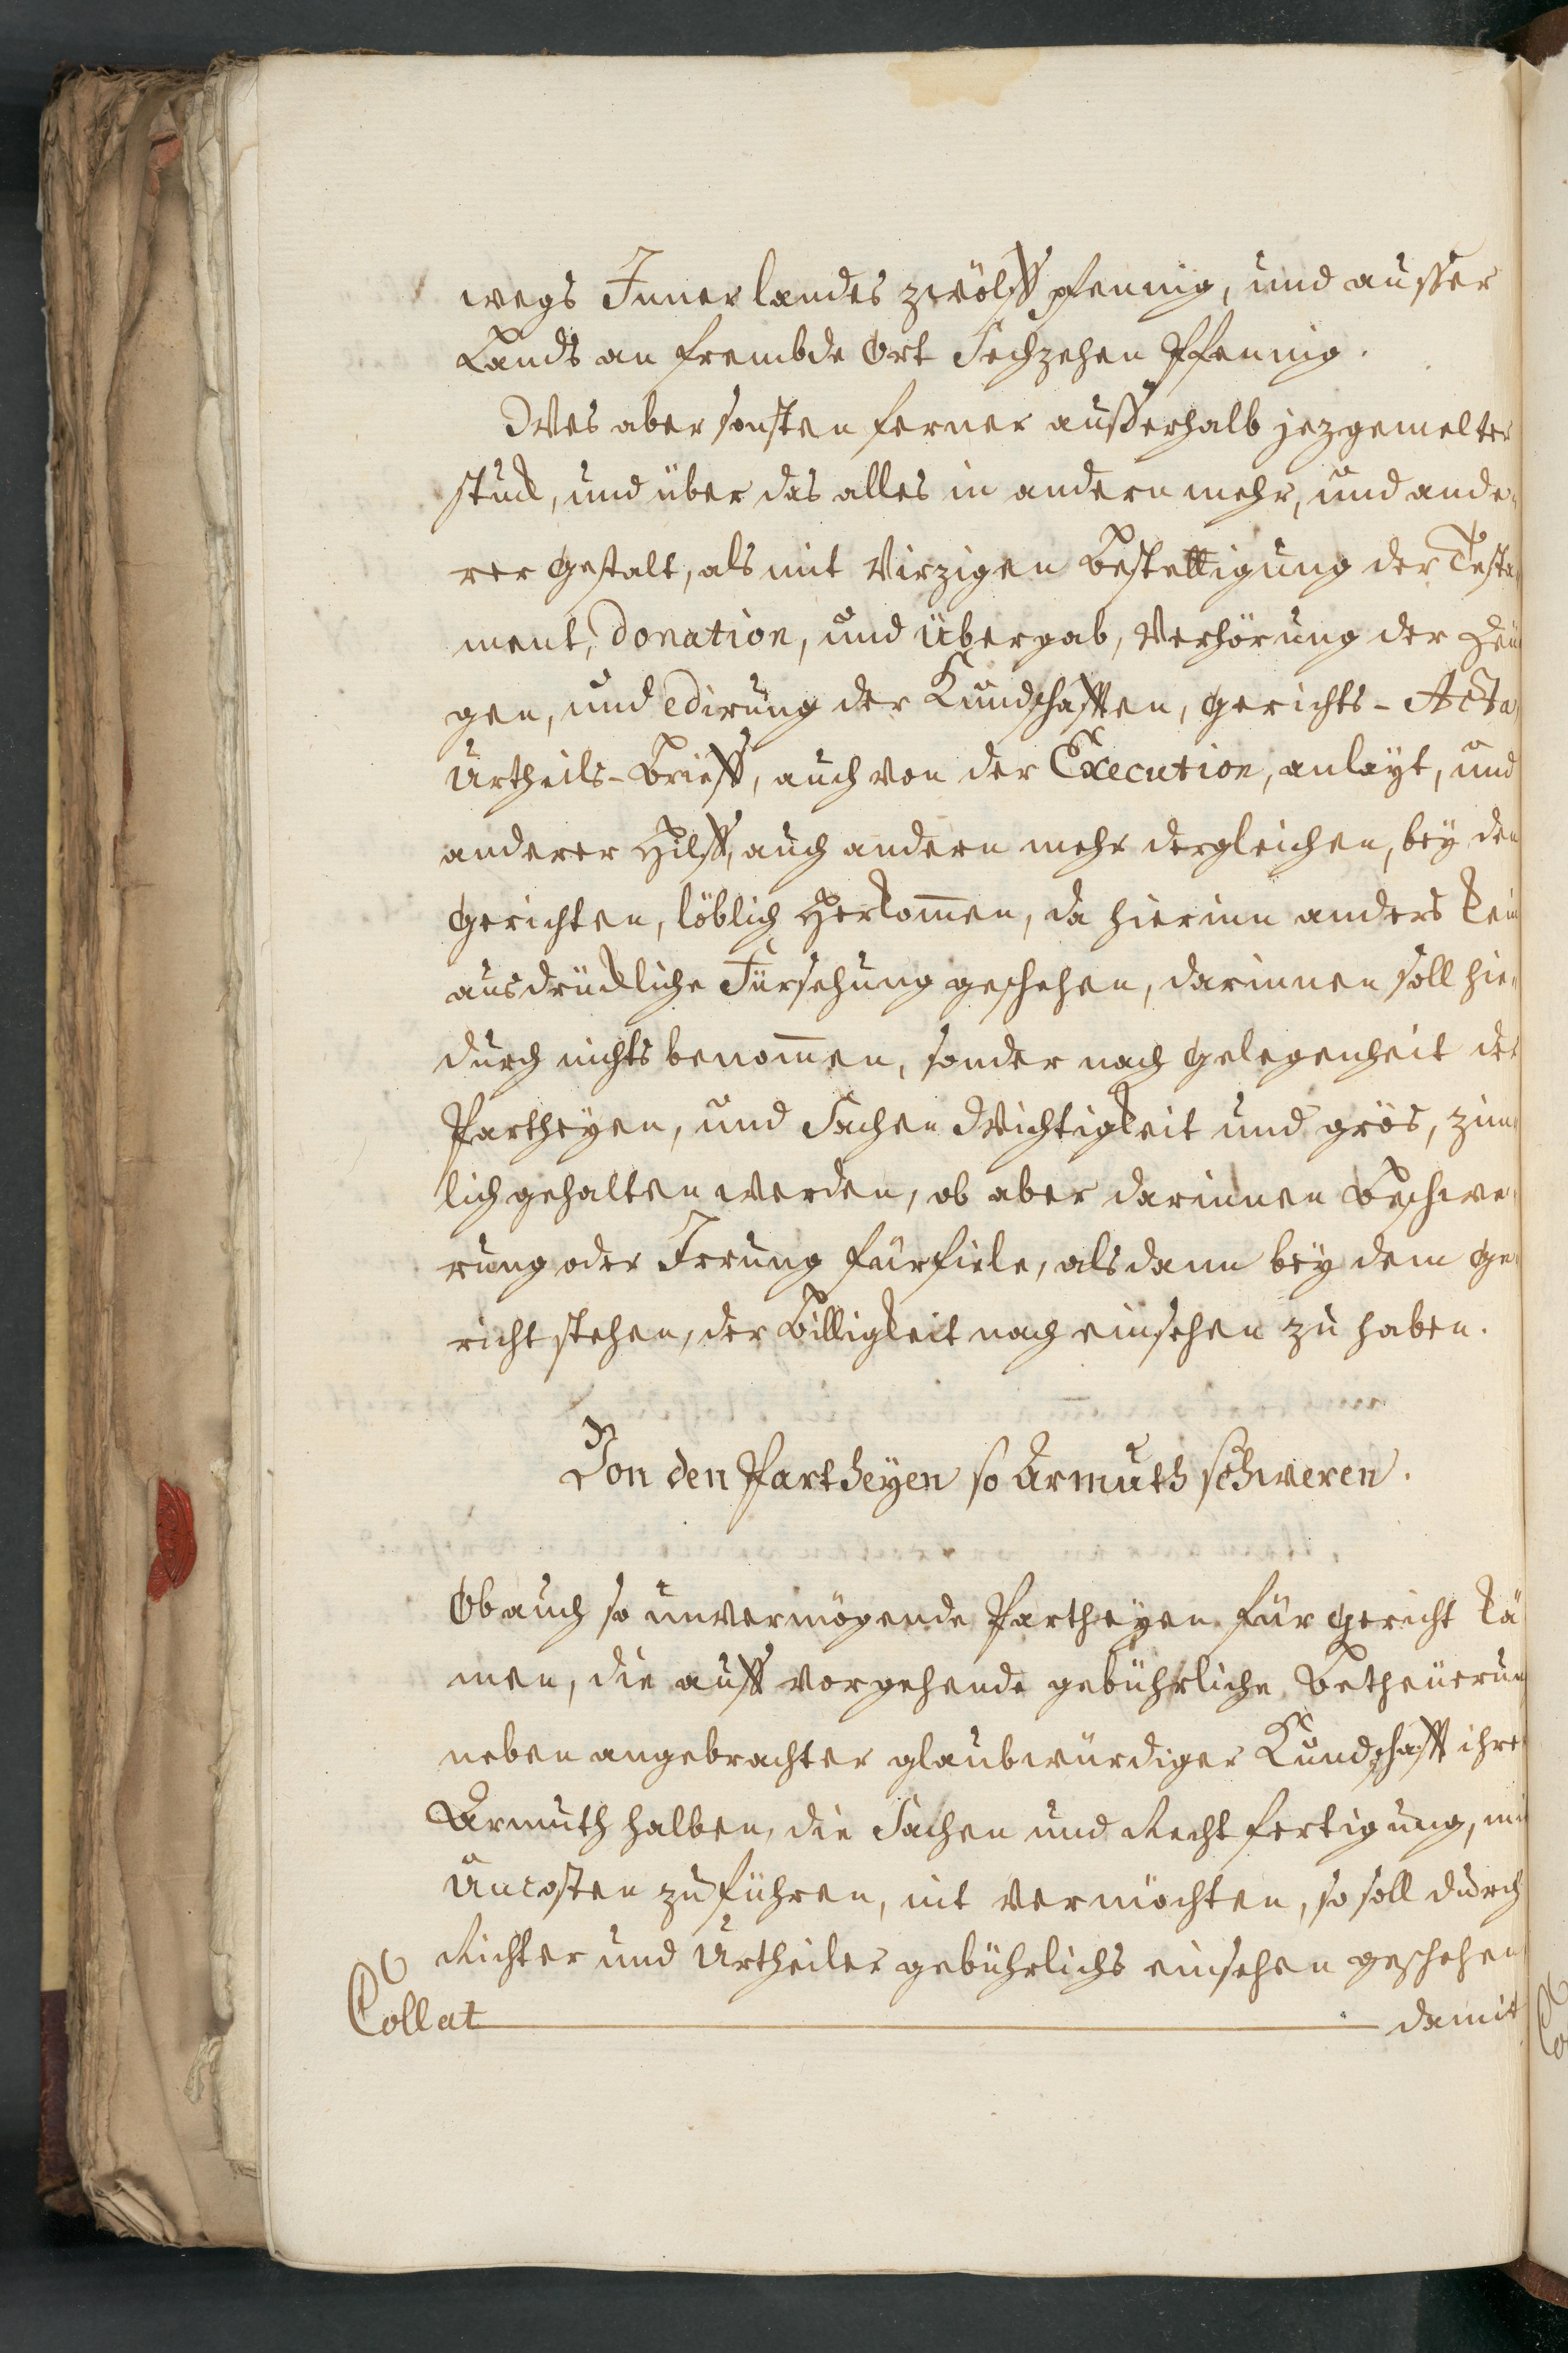 wegs Inner landes zwölff pfennig, und ausser
Lands an frembde Ort Sechzehen Pfennig.
Wes aber sonsten ferner ausserhalb jezgemelter
stuck, und über das alles in andern mehr, und ande-
rer gestalt, als mit Virzigen Bestettigung der Testa-
ment, Donation, und Übergab, Verhörung der Zeü-
gen, und edirung der Kundschafften, gerichts-Acta,
Urtheils-Brieff, auch von der Execution, anlayt, und
anderer Hilff, auch andern mehr dergleichen, bey den
gerichten, löblich Herkom̅en, da hierinn anders kein
ausdrückliche Fürsehung geschehen, darinnen soll hie-
durch nichts benom̅en, sonder nach gelegenheit der
Partheyen, und Sachen Wichtigkeit und grös, zim-
lich gehalten werden, ob aber darinnen Beschwe-
rung oder Irrung fürfiele, alsdann bey dem ge-
richt stehen, der Billigkeit nach einsehen zu haben.
Von den Partheyen so Armuth schweren.
Ob auch so unvermögende Partheyen für gericht kä-
men, die auff vorgehende gebührliche Betheürung
neben angebrachter glaubwürdiger Kundschafft ihrer
Armuth halben, die Sachen und Rechtfertigung, mit
Uncosten zu führen, nit vermöchten, so soll durch
Richter und Urtheiler gebührlichs einsehen geschehen
Collat damit